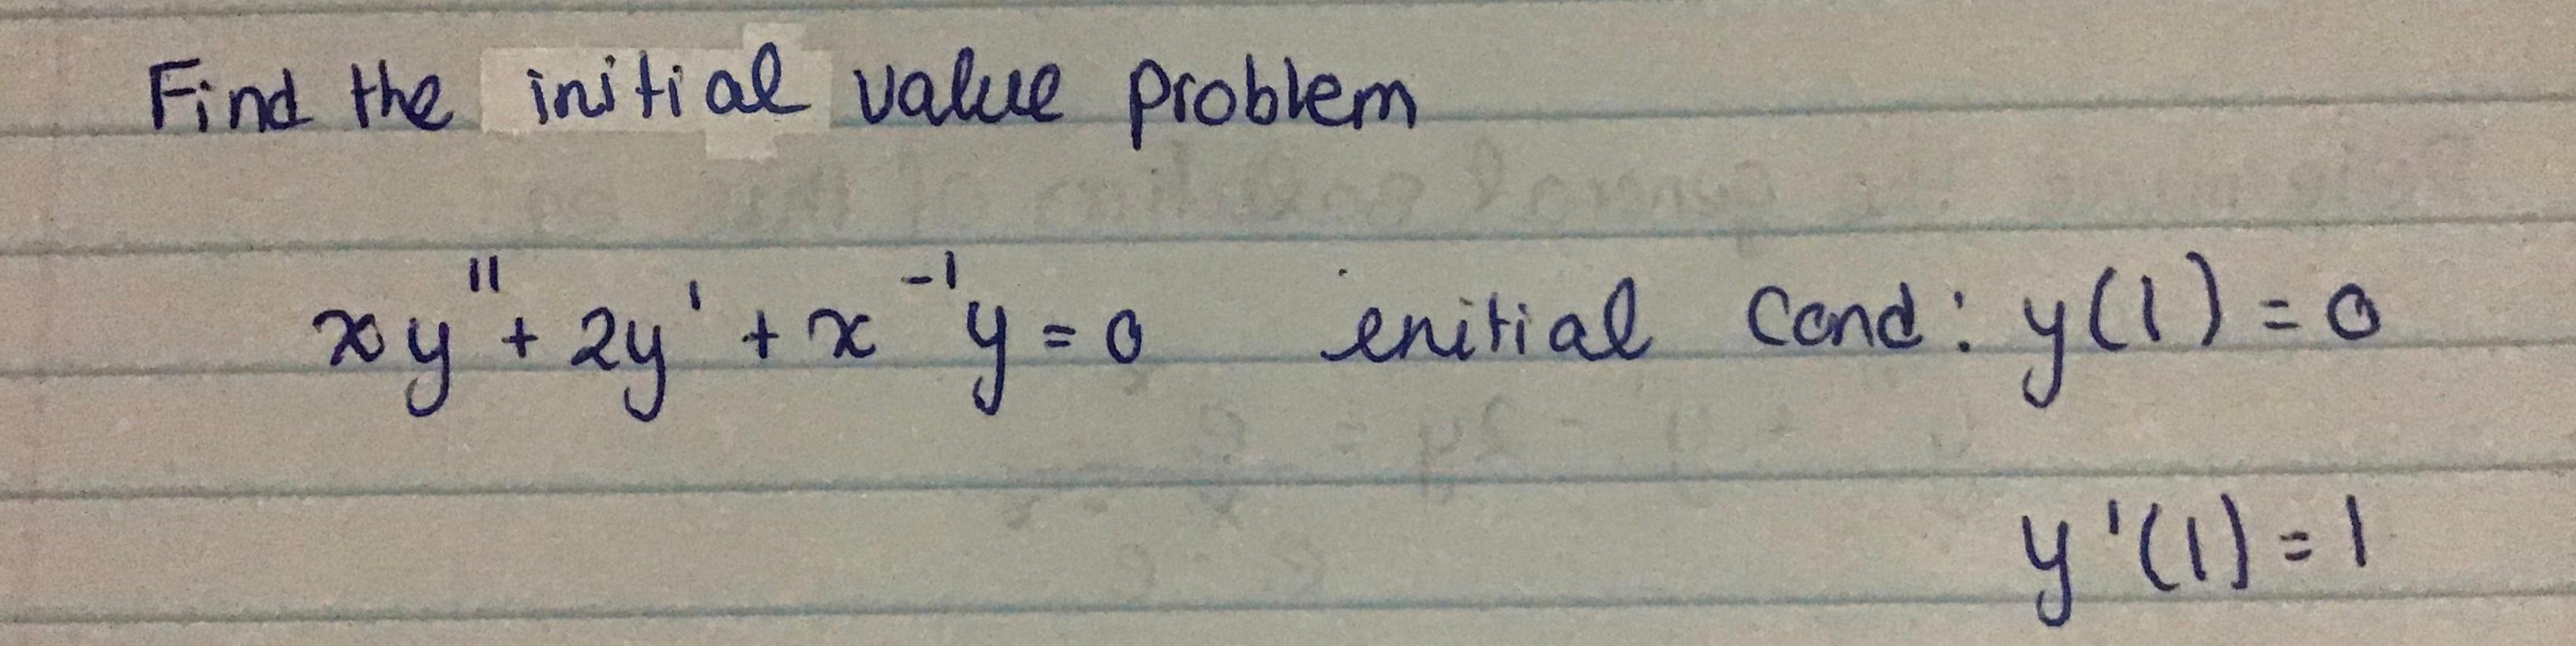 Find the initial value problem
xy" + 2y' + x⁻¹y = 0 enitial Cond: y(1) = 0
y'(1) = 1